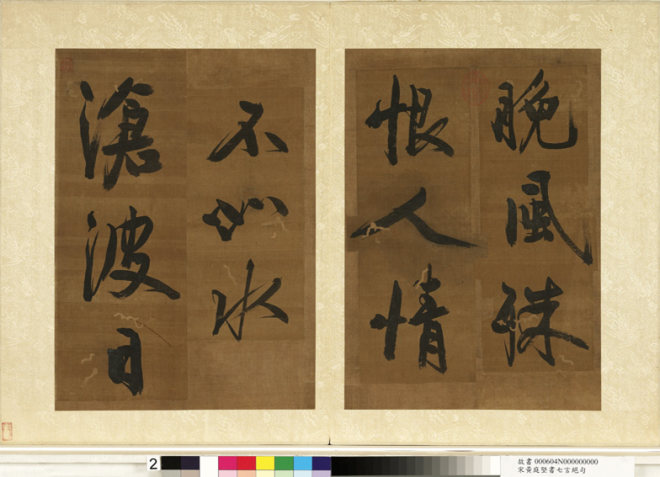 晚風殊
恨人情
不水
滄波日
2
故書 000604N000000000
宋黃庭堅書七言絕句